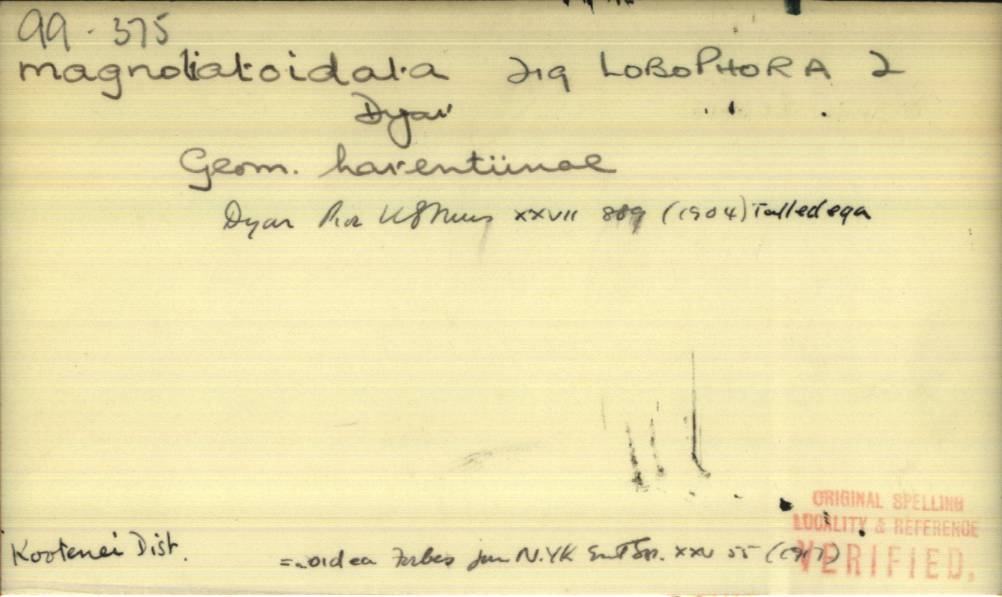 99.375
magnoliatoidata 219 LOBOPHORA 2
Dyar
Geom. larentiinae
Dyar Proc US Mus XXVII 889 (1904) Talledega
ORIGINAL SPELLING
LOCALITY & REFERENCE
VERIFIED.
Kootenei Dist.
=-oidea Forbes jnn N.YK Ent Soc. XXV 55 (1917)